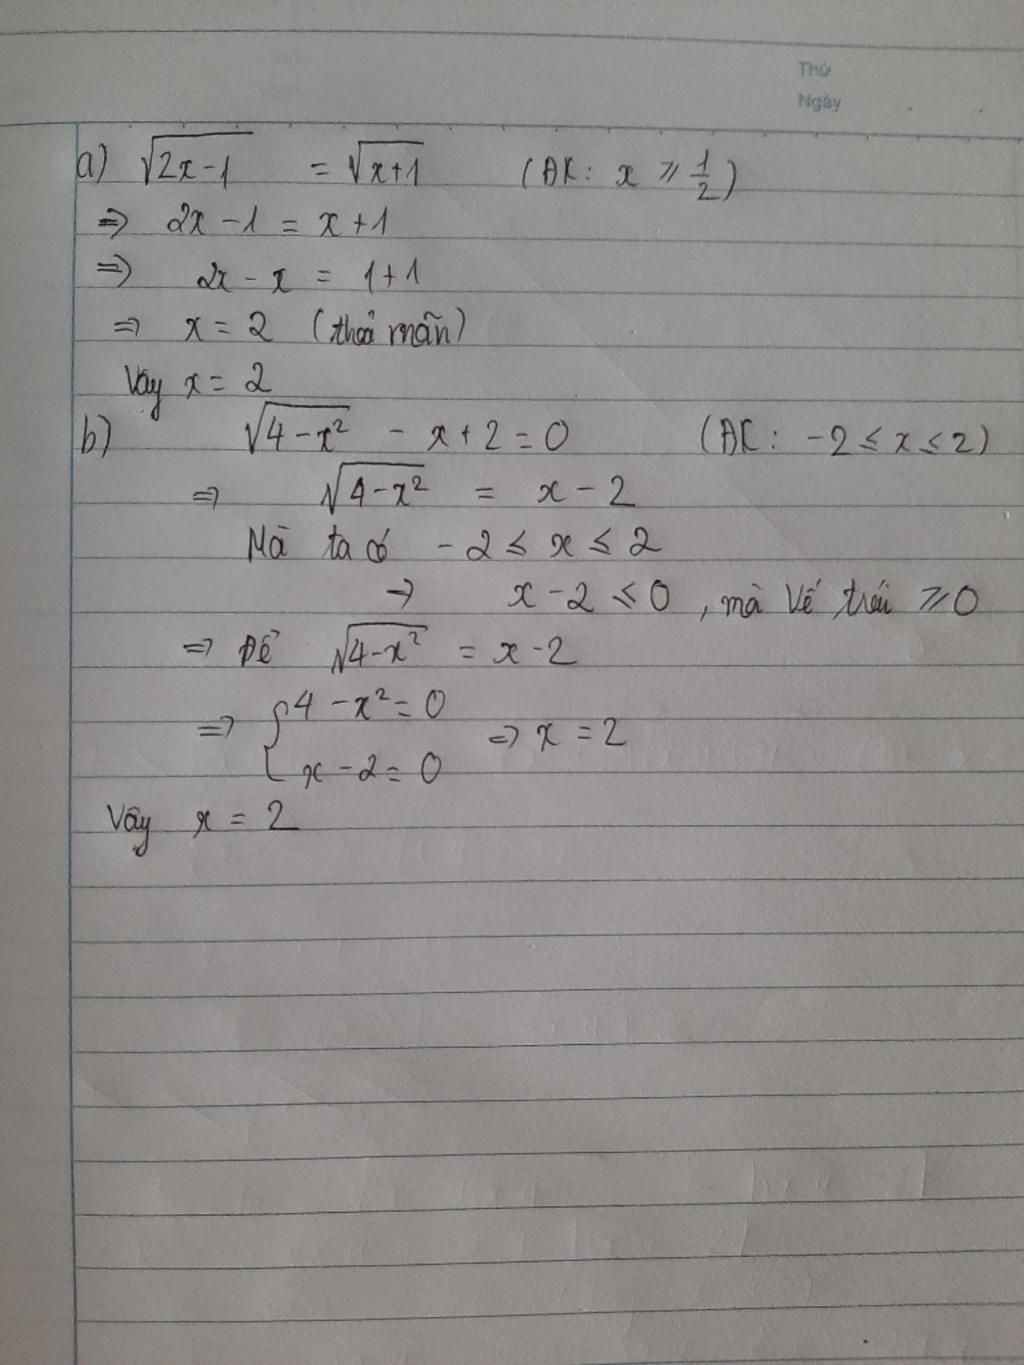 Thứ
Ngày
a) √(2x-1) = √(x+1) (ĐK: x ≥ 1/2)
=> 2x - 1 = x + 1
=> 2x - x = 1 + 1
=> x = 2 (thoả mãn)
Vậy x = 2
b) √(4-x²) - x + 2 = 0 (ĐK: -2 ≤ x ≤ 2)
=> √(4-x²) = x - 2
Mà ta có -2 ≤ x ≤ 2
-> x - 2 ≤ 0, mà vế trái ≥ 0
=> Để √(4-x²) = x - 2
=> { 4 - x² = 0
x - 2 = 0 => x = 2
Vậy x = 2